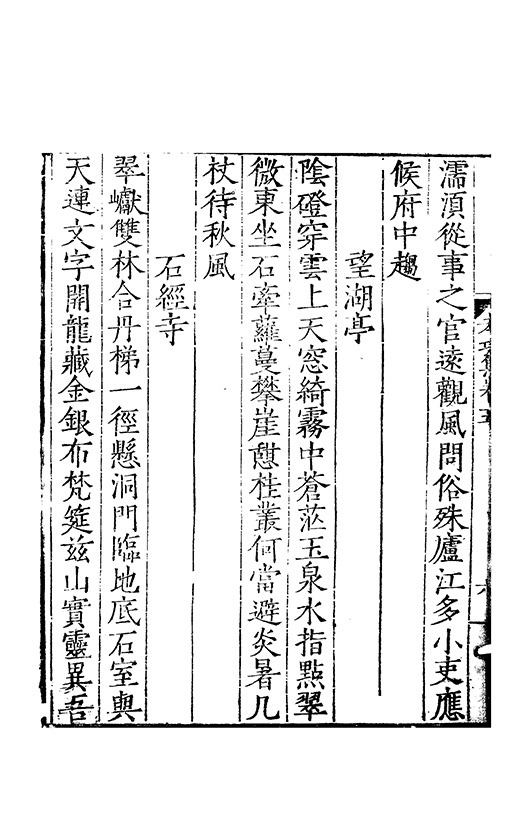 濡須從事之官遠觀風問俗殊廬江多小吏應
候府中趨
望湖亭
陰磴穿雲上天窓綺霧中蒼茫玉泉水指點翠
微東坐石牽蘿蔓攀崖憇桂叢何當避炎暑几
杖待秋風
石經寺
翠巘雙林合丹梯一徑懸洞門臨地底石室與
天連文字開龍藏金銀布梵筵兹山實靈異吾